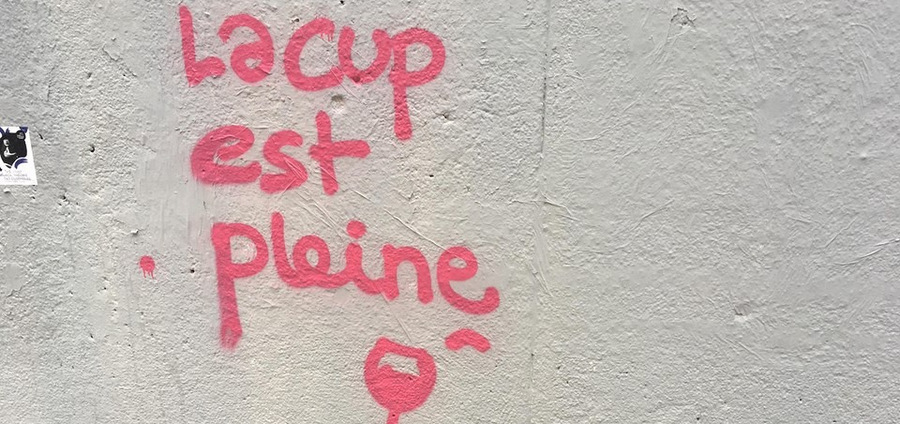 La cup
est
pleine